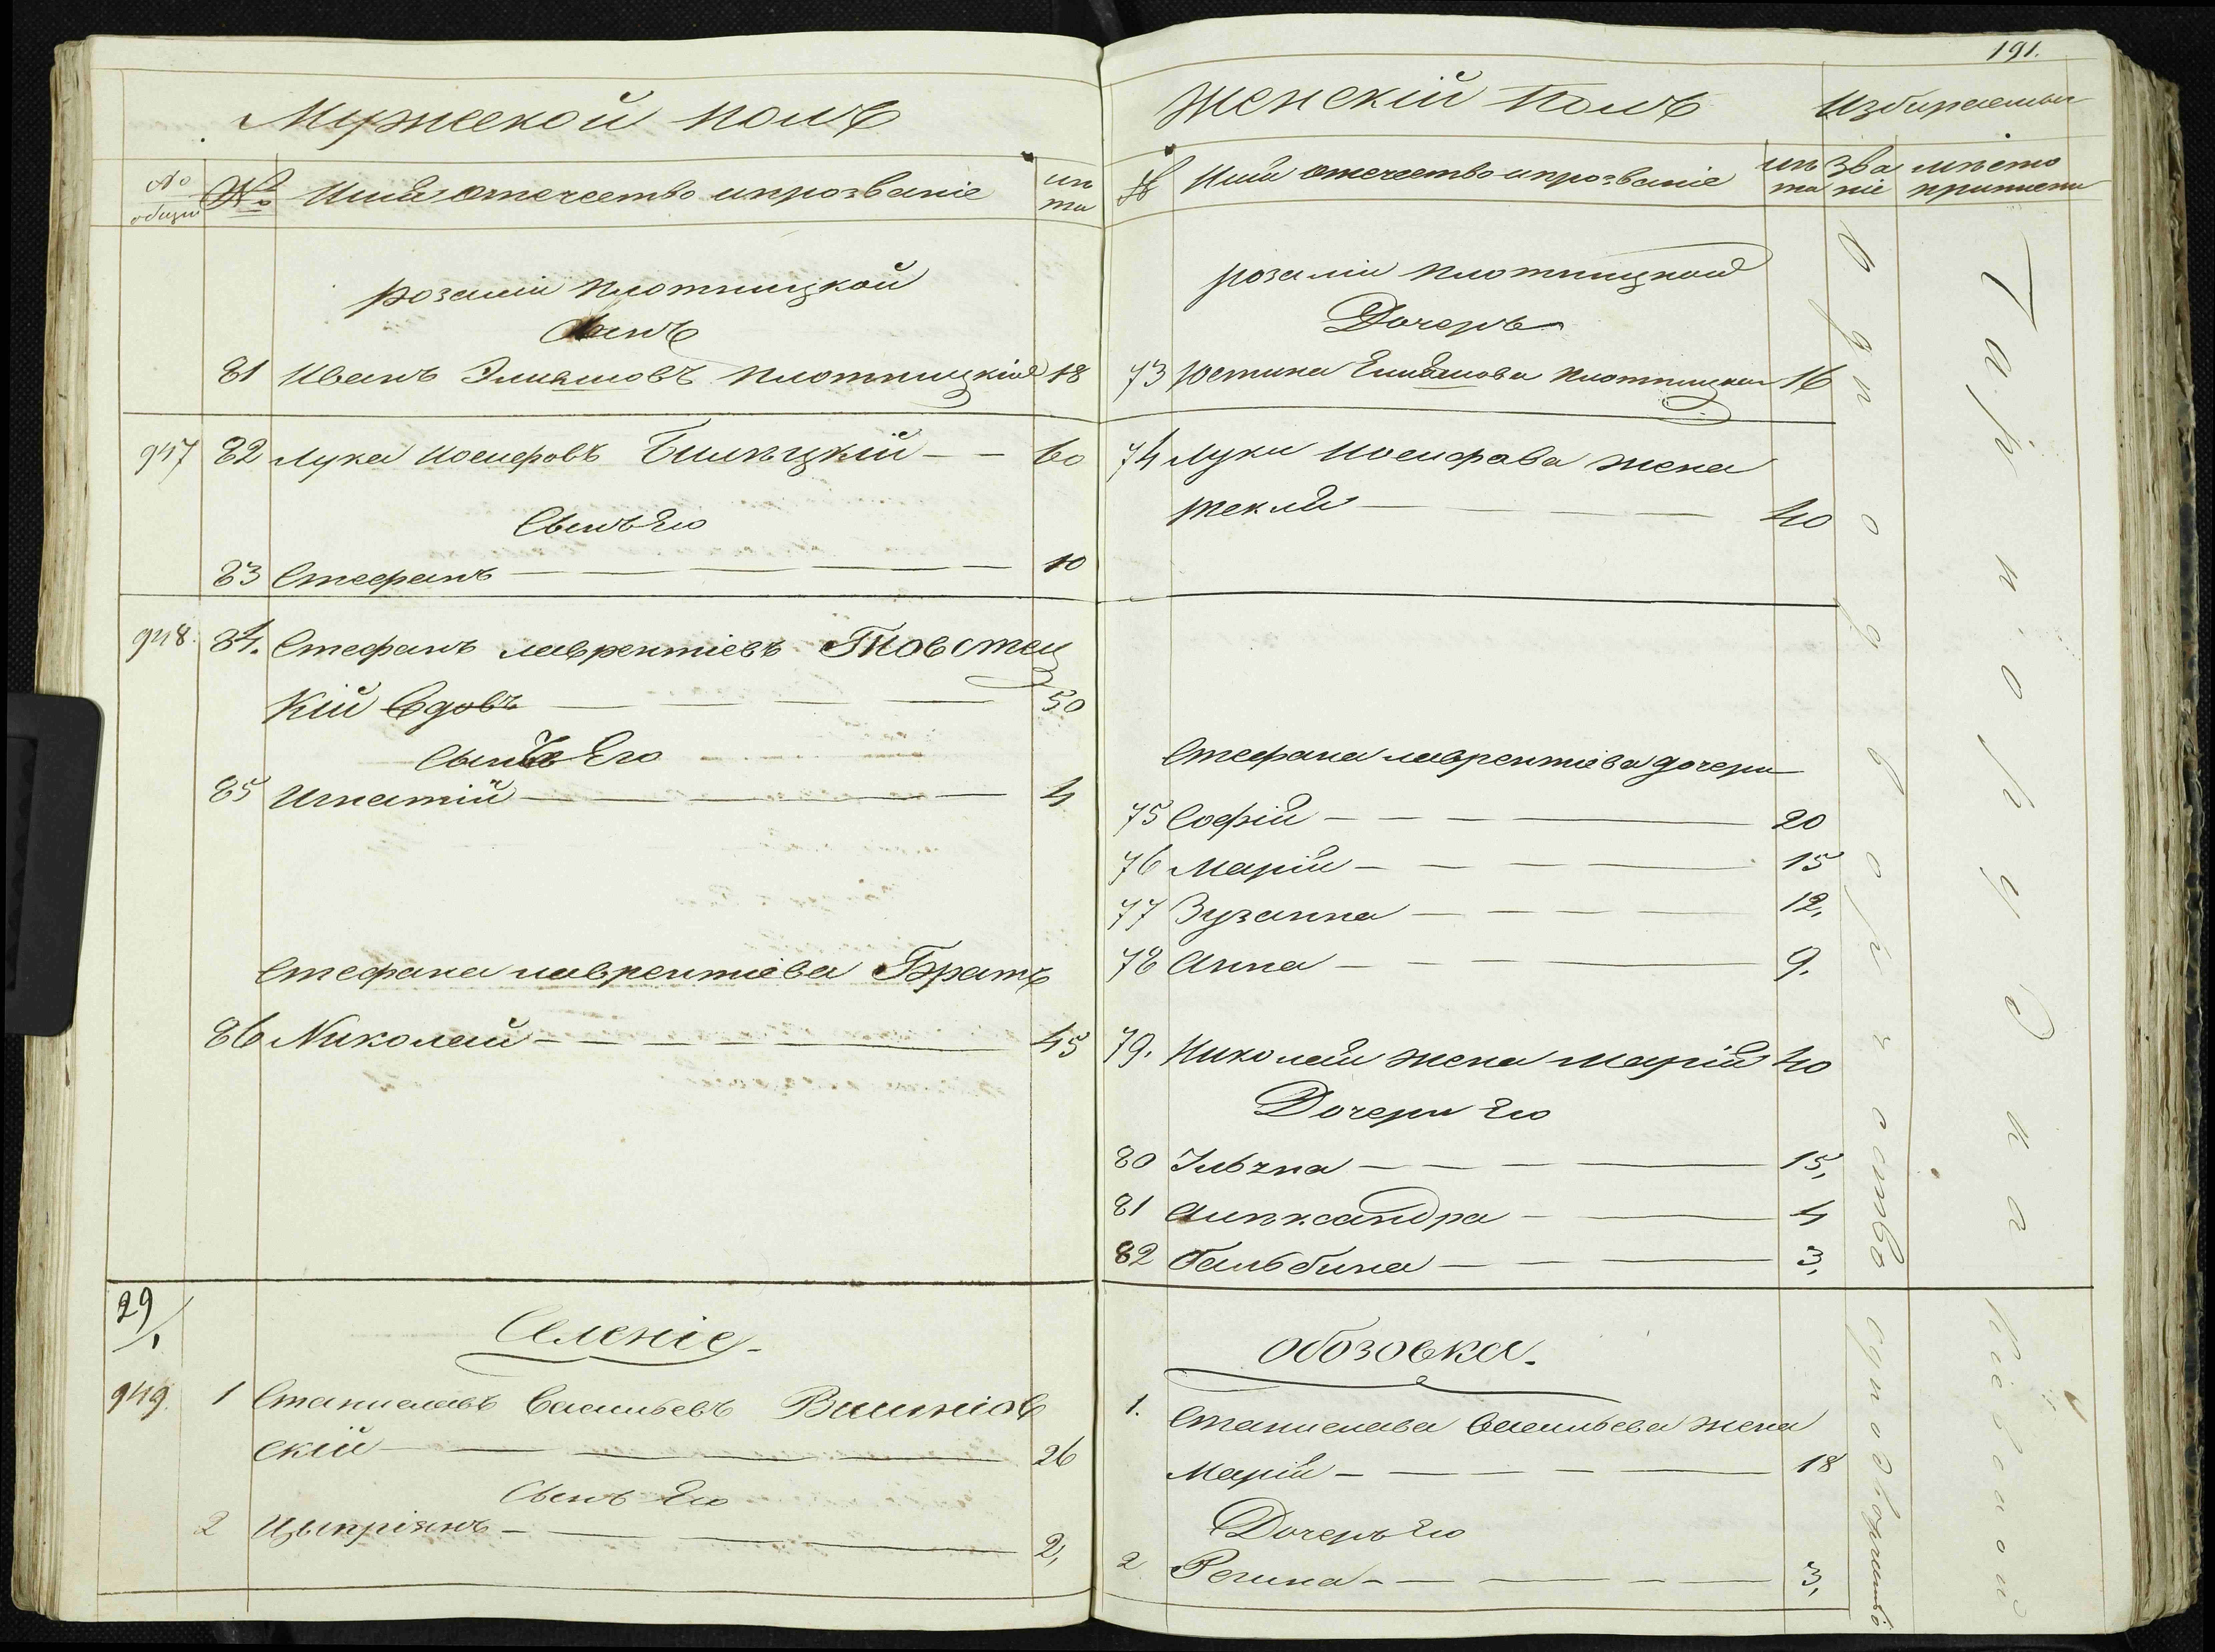 Мужеской полъ
№ общій
№
Имя отечество и прозваніе
лѣта
Розаліи Плотницкой
Сынъ
81 Иванъ Эмиліановъ Плотницкій 18
947 82 Лука Іосифовъ Билѣцкій 60
Сынъ Его
83 Стефанъ 10
948. 84. Стефанъ Лаврентіевъ Товстец
кій вдовъ 50
Сынъ Его
85 Игнатій 4
Стефана Лаврентіева Братъ
86 Николай 45
29/1
Селеніе
949. 1 Станиславъ Васильевъ Вишніов
скій 26
Сынъ Его
2 Цыпріянъ 2,
191.
Женскій полъ
Избираемы
№
Имя отечество и прозваніе
лѣта
Званіе
мѣсто приписки
Розаліи Плотницкой
Дочерь
73 Юстина Емиліанова Плотницкая 16
74 Луки Іосифова жена
Текля 40
Стефана Лаврентіева дочери
75 Софія 20
76 Марія 15
77 Зузанна 12,
78 Анна 9.
79. Николая жена Марія 40
Дочери Его
80 Юльяна 15,
81 Алѣксандра 4
82 Бальбина 3,
однодворчество
Гайсиорудка
Обозовка.
1. Станислава Васильева жена
Марія 18
Дочерь Его
2 Регина 3,
однодворчество